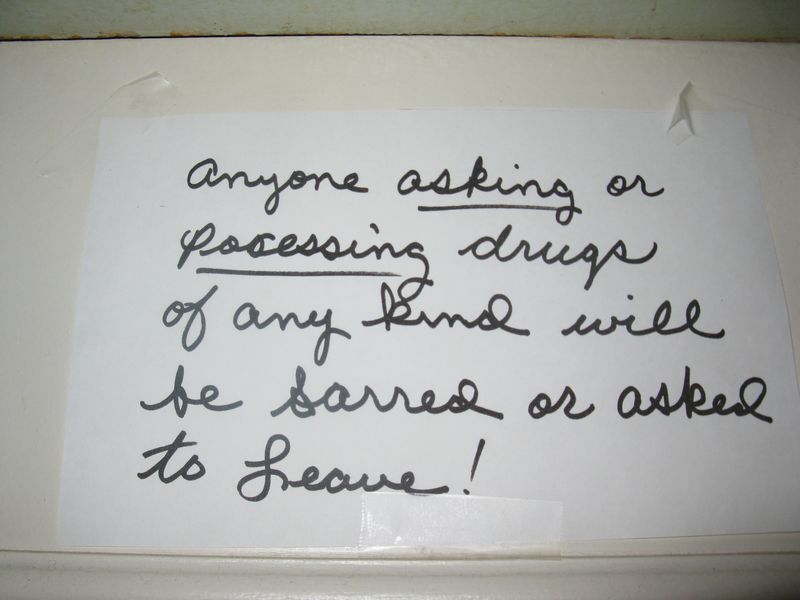 Anyone asking or
pocessing drugs
of any kind will
be barred or asked
to Leave!